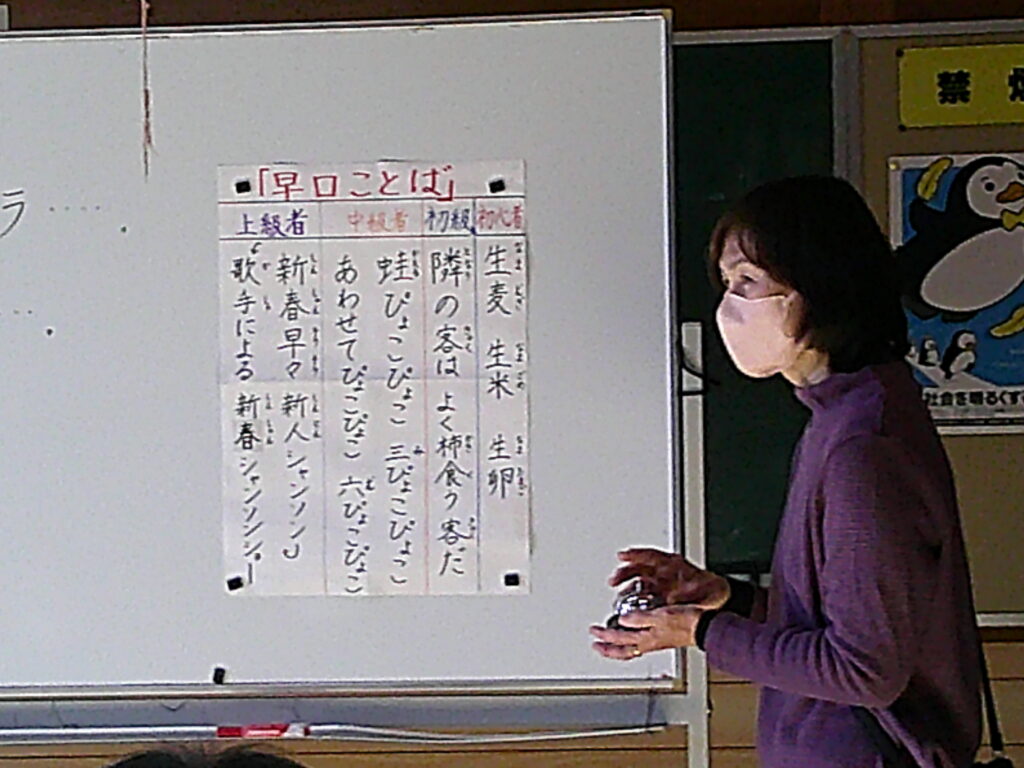 「早口ことば」
初心者
生麦 生米 生卵
初級
隣の客は よく柿食う客だ
中級者
蛙ぴょこぴょこ 三ぴょこぴょこ
あわせてぴょこぴょこ 六ぴょこぴょこ
上級者
新春早々 新人シャンソン
歌手による 新春シャンソンショー
ラ
禁
社会を明るくす